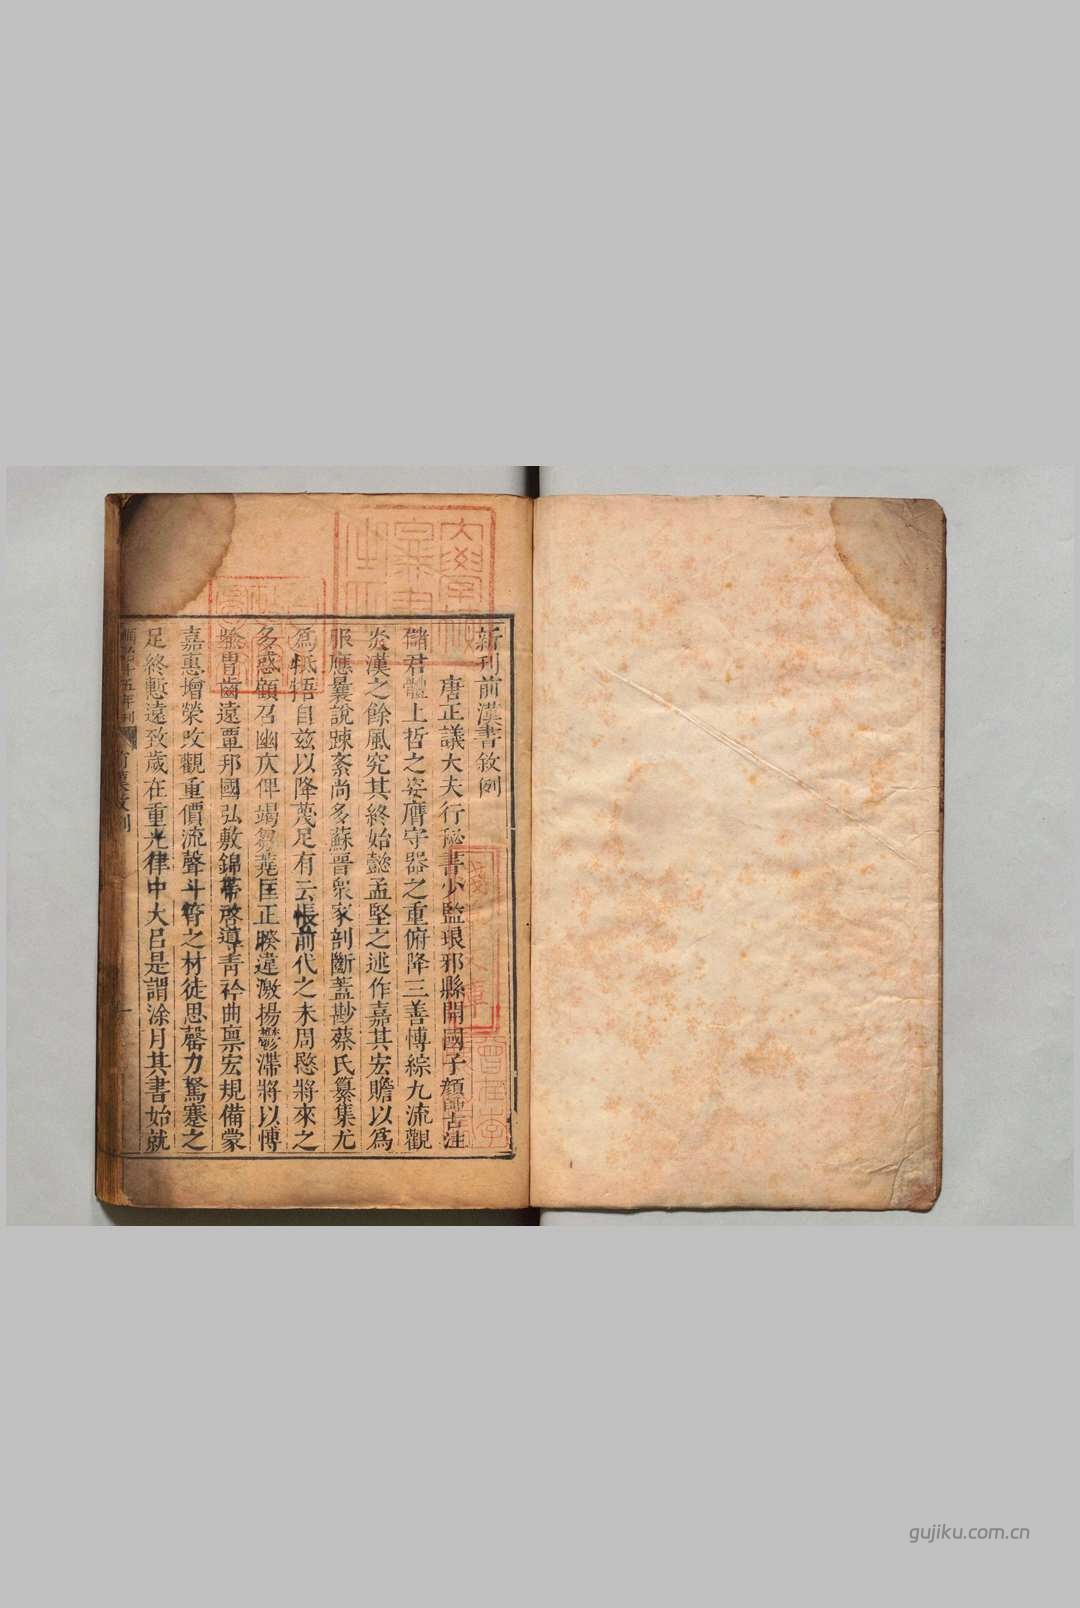 新刊前漢書敘例
唐正議大夫行秘書少監琅邪縣開國子顏師古注
儲君體上哲之姿膺守器之重俯降三善博綜九流觀
炎漢之餘風究其終始懿孟堅之述作嘉其宏贍以為
服應曩說踈紊尚多蘇晉衆家剖斷蓋尠蔡氏纂集尤
為牴牾自茲以降蔑足有云悵前代之未周愍將來之
多惑顧召幽仄俾竭芻蕘匡正睽違激揚鬱滯將以博
喻胄齒遠覃邦國弘敷錦帶啓導青衿曲禀宏規備蒙
嘉惠增榮改觀重價流聲斗筲之材徒思罄力駑蹇之
足終慙遠致歲在重光律中大呂是謂涂月其書始就
五年刊
前漢敘例
一
gujiku.com.cn